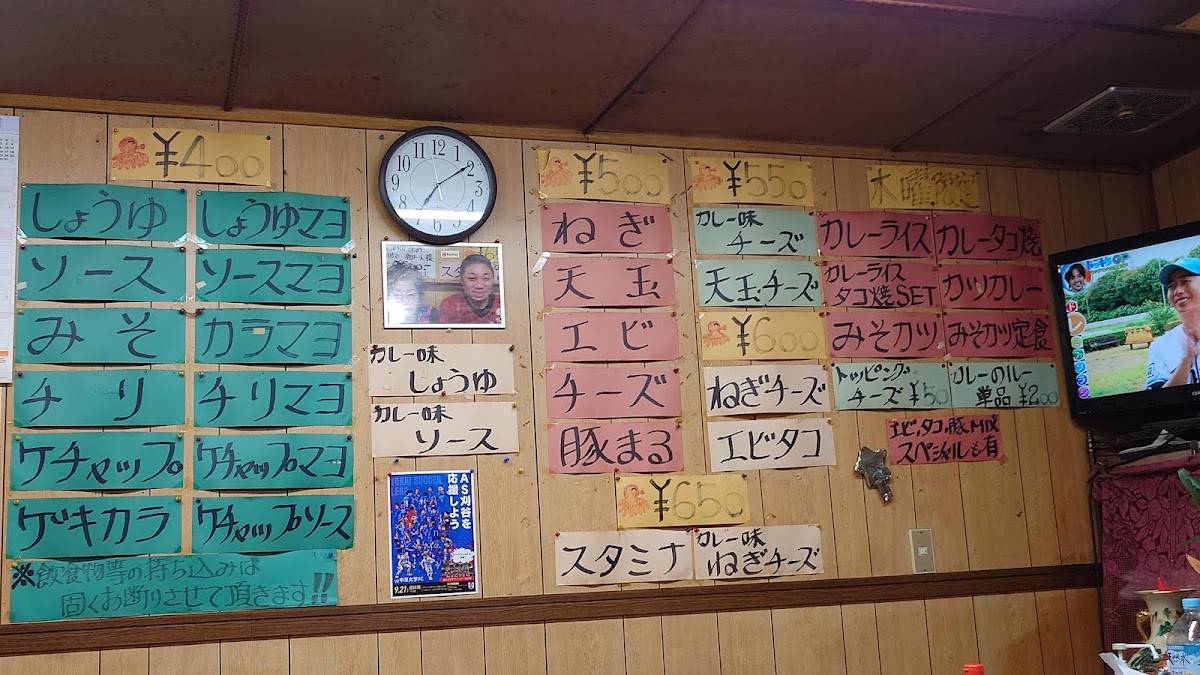 ¥400
しょうゆ
しょうゆマヨ
ソース
ソースマヨ
みそ
カラマヨ
チリ
チリマヨ
ケチャップ
ケチャップマヨ
ゲキカラ
ケチャップソース
※飲食物等の持ち込みは
固くお断りさせて頂きます!!
カレー味
しょうゆ
カレー味
ソース
AS刈谷を
応援しよう
9.21
¥500
ねぎ
天玉
エビ
チーズ
豚まる
¥550
カレー味
チーズ
天玉チーズ
¥600
ねぎチーズ
エビタコ
¥650
スタミナ
カレー味
ねぎチーズ
水曜限定
カレーライス
カレータコ焼
カレーライス
タコ焼SET
カツカレー
みそカツ
みそカツ定食
トッピング
チーズ ¥50
カレーのルー
単品 ¥200
エビ、タコ、豚MIX
スペシャルも有
12
11
1
10
2
9
3
8
4
7
5
6